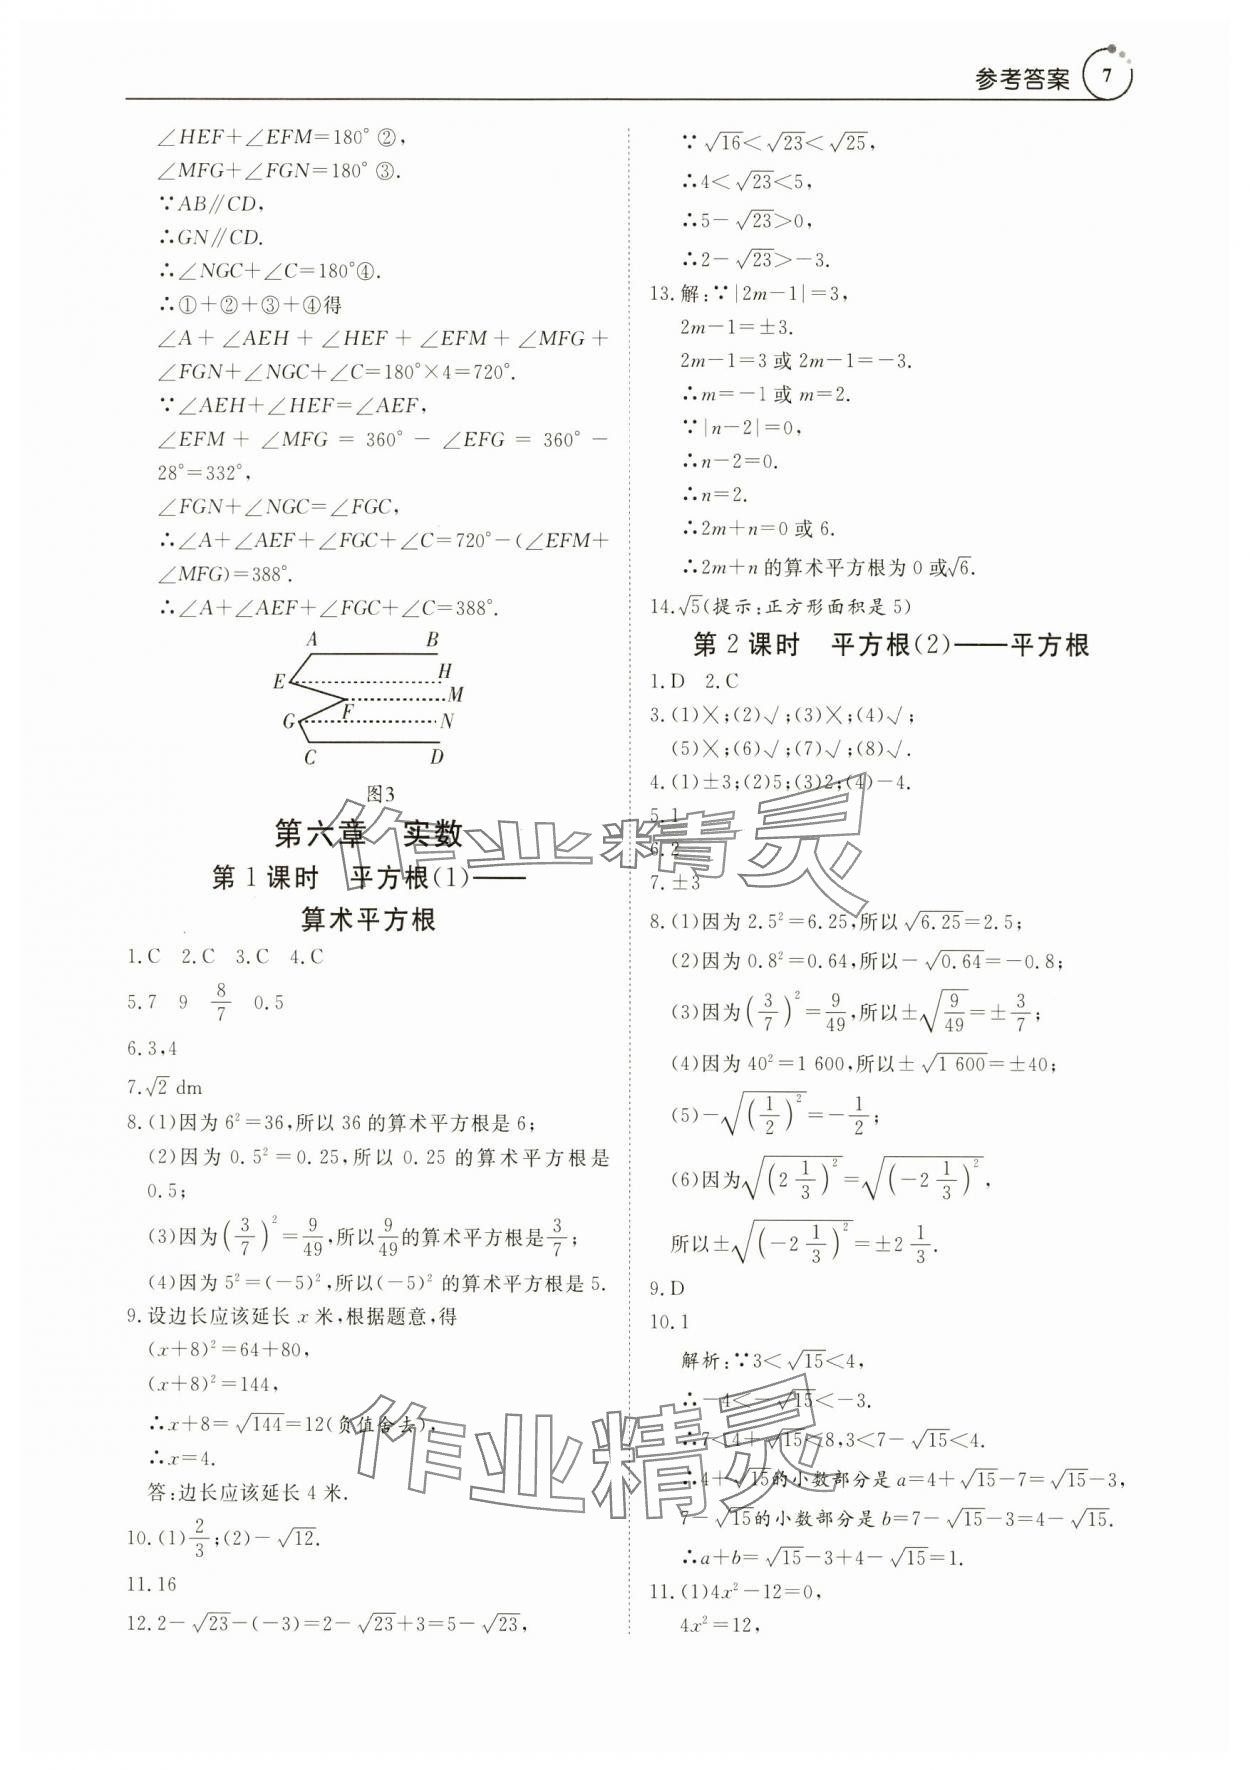 参考答案 7
∠HEF+∠EFM=180° ②,
∠MFG+∠FGN=180° ③.
∵AB∥CD,
∴GN∥CD.
∴∠NGC+∠C=180°④.
∴①+②+③+④得
∠A+∠AEH+∠HEF+∠EFM+∠MFG+
∠FGN+∠NGC+∠C=180°×4=720°.
∵∠AEH+∠HEF=∠AEF,
∠EFM+∠MFG=360°-∠EFG=360°-
28°=332°,
∠FGN+∠NGC=∠FGC,
∴∠A+∠AEF+∠FGC+∠C=720°-(∠EFM+
∠MFG)=388°.
∴∠A+∠AEF+∠FGC+∠C=388°.
A B
E H
F M
G N
C D
图3
第六章 实数
第1课时 平方根(1)——
算术平方根
1.C 2.C 3.C 4.C
5.7 9 8/7 0.5
6.3,4
7.√2 dm
8.(1)因为 6²=36,所以 36 的算术平方根是 6;
(2)因为 0.5²=0.25,所以 0.25 的算术平方根是
0.5;
(3)因为(3/7)²=9/49,所以9/49的算术平方根是3/7;
(4)因为 5²=(-5)²,所以(-5)² 的算术平方根是 5.
9.设边长应该延长 x 米,根据题意,得
(x+8)²=64+80,
(x+8)²=144,
∴x+8=√144=12(负值舍去),
∴x=4.
答:边长应该延长 4 米.
10.(1)2/3;(2)-√12.
11.16
12.2-√23-(-3)=2-√23+3=5-√23,
∵√16<√23<√25,
∴4<√23<5,
∴5-√23>0,
∴2-√23>-3.
13.解:∵|2m-1|=3,
2m-1=±3.
2m-1=3 或 2m-1=-3.
∴m=-1 或 m=2.
∵|n-2|=0,
∴n-2=0.
∴n=2.
∴2m+n=0 或 6.
∴2m+n 的算术平方根为 0 或√6.
14.√5(提示:正方形面积是 5)
第2课时 平方根(2)——平方根
1.D 2.C
3.(1)×;(2)√;(3)×;(4)√;
(5)×;(6)√;(7)√;(8)√.
4.(1)±3;(2)5;(3)2;(4)-4.
5.1
6.2
7.±3
8.(1)因为 2.5²=6.25,所以√6.25=2.5;
(2)因为 0.8²=0.64,所以-√0.64=-0.8;
(3)因为(3/7)²=9/49,所以±√(9/49)=±3/7;
(4)因为 40²=1 600,所以±√1 600=±40;
(5)-√((1/2)²)=-1/2;
(6)因为√((2 1/3)²)=√((-2 1/3)²),
所以±√((-2 1/3)²)=±2 1/3.
9.D
10.1
解析:∵3<√15<4,
∴-4<-√15<-3.
∴7<4+√15<8,3<7-√15<4.
∴4+√15的小数部分是 a=4+√15-7=√15-3,
7-√15的小数部分是 b=7-√15-3=4-√15.
∴a+b=√15-3+4-√15=1.
11.(1)4x²-12=0,
4x²=12,
作业精灵
作业精灵